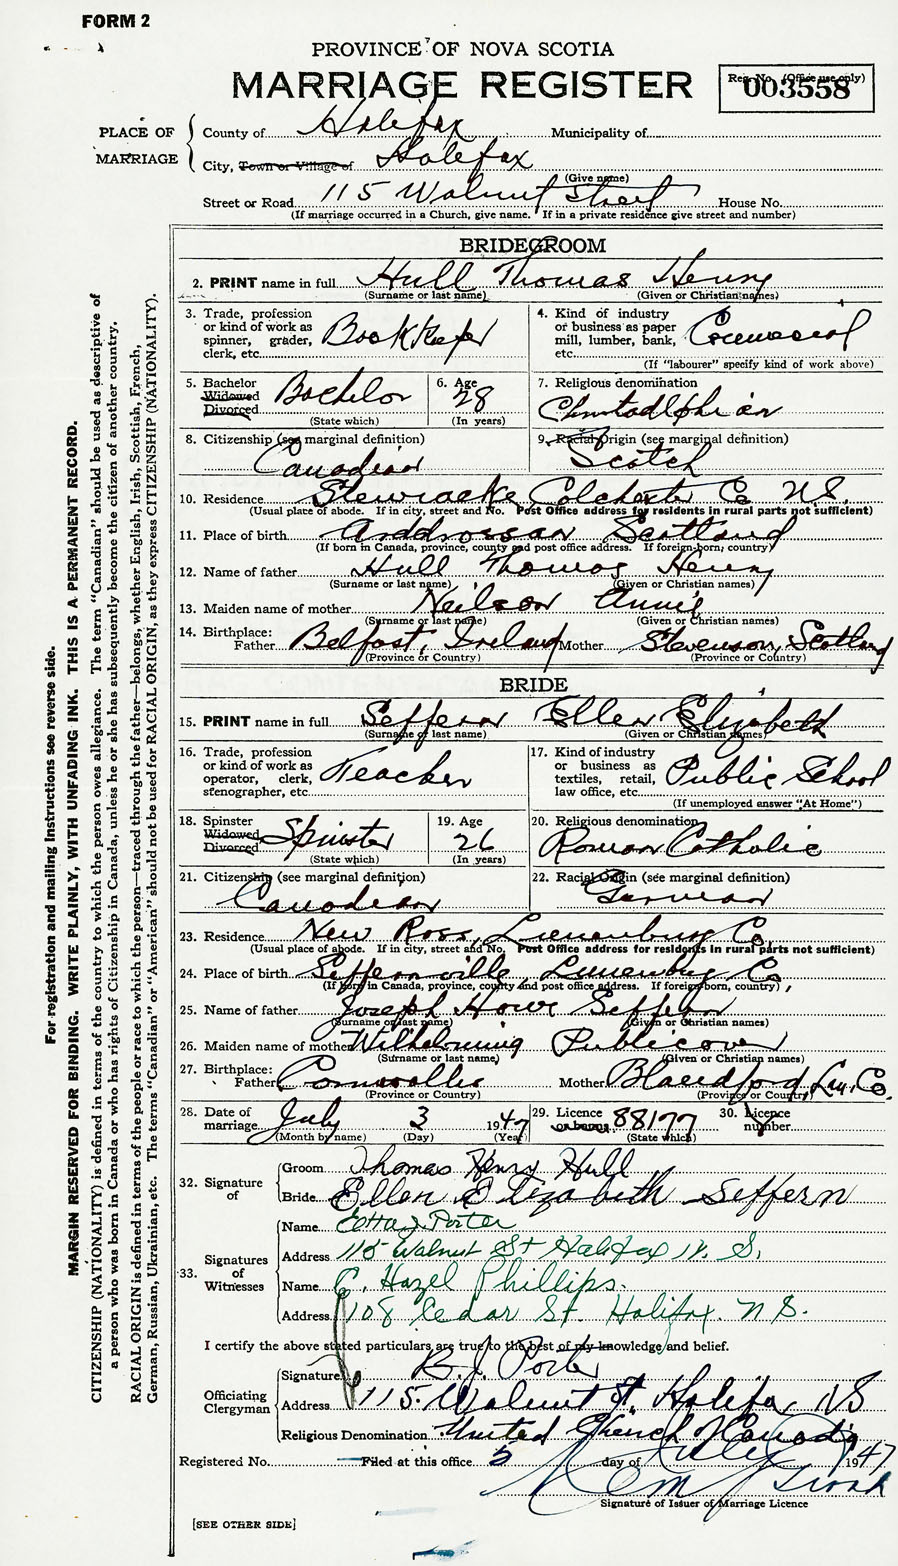 FORM 2
PROVINCE OF NOVA SCOTIA
MARRIAGE REGISTER
Reg. No. (Office use only)
003558
PLACE OF MARRIAGE
County of Halifax Municipality of
City, Town or Village of Halifax
(Give name)
Street or Road 115 Walnut Street House No.
(If marriage occurred in a Church, give name. If in a private residence give street and number)
BRIDEGROOM
2. PRINT name in full Hull Thomas Henry
(Surname or last name) (Given or Christian names)
3. Trade, profession or kind of work as spinner, grader, clerk, etc. BookKeeper
4. Kind of industry or business as paper mill, lumber, bank, etc. Commercial
(If "labourer" specify kind of work above)
5. Bachelor Widowed Divorced Bachelor
(State which)
6. Age 28
(In years)
7. Religious denomination
Christadelphian
8. Citizenship (see marginal definition)
Canadian
9. Racial Origin (see marginal definition)
Scotch
10. Residence Stewiacke Colchester Co N.S.
(Usual place of abode. If in city, street and No. Post Office address for residents in rural parts not sufficient)
11. Place of birth Arddrossan Scotland
(If born in Canada, province, county and post office address. If foreign-born, country)
12. Name of father Hull Thomas Henry
(Surname or last name) (Given or Christian names)
13. Maiden name of mother Neilson Annie
(Surname or last name) (Given or Christian names)
14. Birthplace: Father Belfast, Ireland Mother Stevenson, Scotland
(Province or Country) (Province or Country)
BRIDE
15. PRINT name in full Seffern Ellen Elizabeth
(Surname or last name) (Given or Christian names)
16. Trade, profession or kind of work as operator, clerk, stenographer, etc. Teacher
17. Kind of industry or business as textiles, retail, law office, etc. Public School
(If unemployed answer "At Home")
18. Spinster Widowed Divorced Spinster
(State which)
19. Age 26
(In years)
20. Religious denomination
Roman Catholic
21. Citizenship (see marginal definition)
Canadian
22. Racial Origin (see marginal definition)
German
23. Residence New Ross, Lunenburg Co.
(Usual place of abode. If in city, street and No. Post Office address for residents in rural parts not sufficient)
24. Place of birth Seffernville, Lunenburg Co,
(If born in Canada, province, county and post office address. If foreign-born, country)
25. Name of father Joseph Howe Seffern
(Surname or last name) (Given or Christian names)
26. Maiden name of mother Wilhelmina Publicover
(Surname or last name) (Given or Christian names)
27. Birthplace: Father Cornwallis Mother Blandford, Lun. Co.
(Province or Country) (Province or Country)
28. Date of marriage July 3 1947
(Month by name) (Day) (Year)
29. Licence or banns 88177
(State which)
30. Licence number
32. Signature of
Groom Thomas Henry Hull
Bride Ellen Elizabeth Seffern
33. Signatures of Witnesses
Name Etta J Porter
Address 115 Walnut St Halifax N.S.
Name C. Hazel Phillips.
Address 108 Cedar St. Halifax. N.S.
I certify the above stated particulars are true to the best of my knowledge and belief.
Officiating Clergyman
Signature B. J. Porter
Address 115 Walnut St. Halifax, NS
Religious Denomination United Church of Canada
Registered No. Filed at this office 5 day of July 1947
Signature of Issuer of Marriage Licence
[SEE OTHER SIDE]
For registration and mailing instructions see reverse side.
MARGIN RESERVED FOR BINDING. WRITE PLAINLY, WITH UNFADING INK. THIS IS A PERMANENT RECORD.
CITIZENSHIP (NATIONALITY) is defined in terms of the country to which the person owes allegiance. The term "Canadian" should be used as descriptive of
a person who was born in Canada or who has rights of Citizenship in Canada, unless he or she has subsequently become the citizen of another country.
RACIAL ORIGIN is defined in terms of the people or race to which the person—traced through the father—belongs, whether English, Irish, Scottish, French,
German, Russian, Ukrainian, etc. The terms "Canadian" or "American" should not be used for RACIAL ORIGIN, as they express CITIZENSHIP (NATIONALITY).